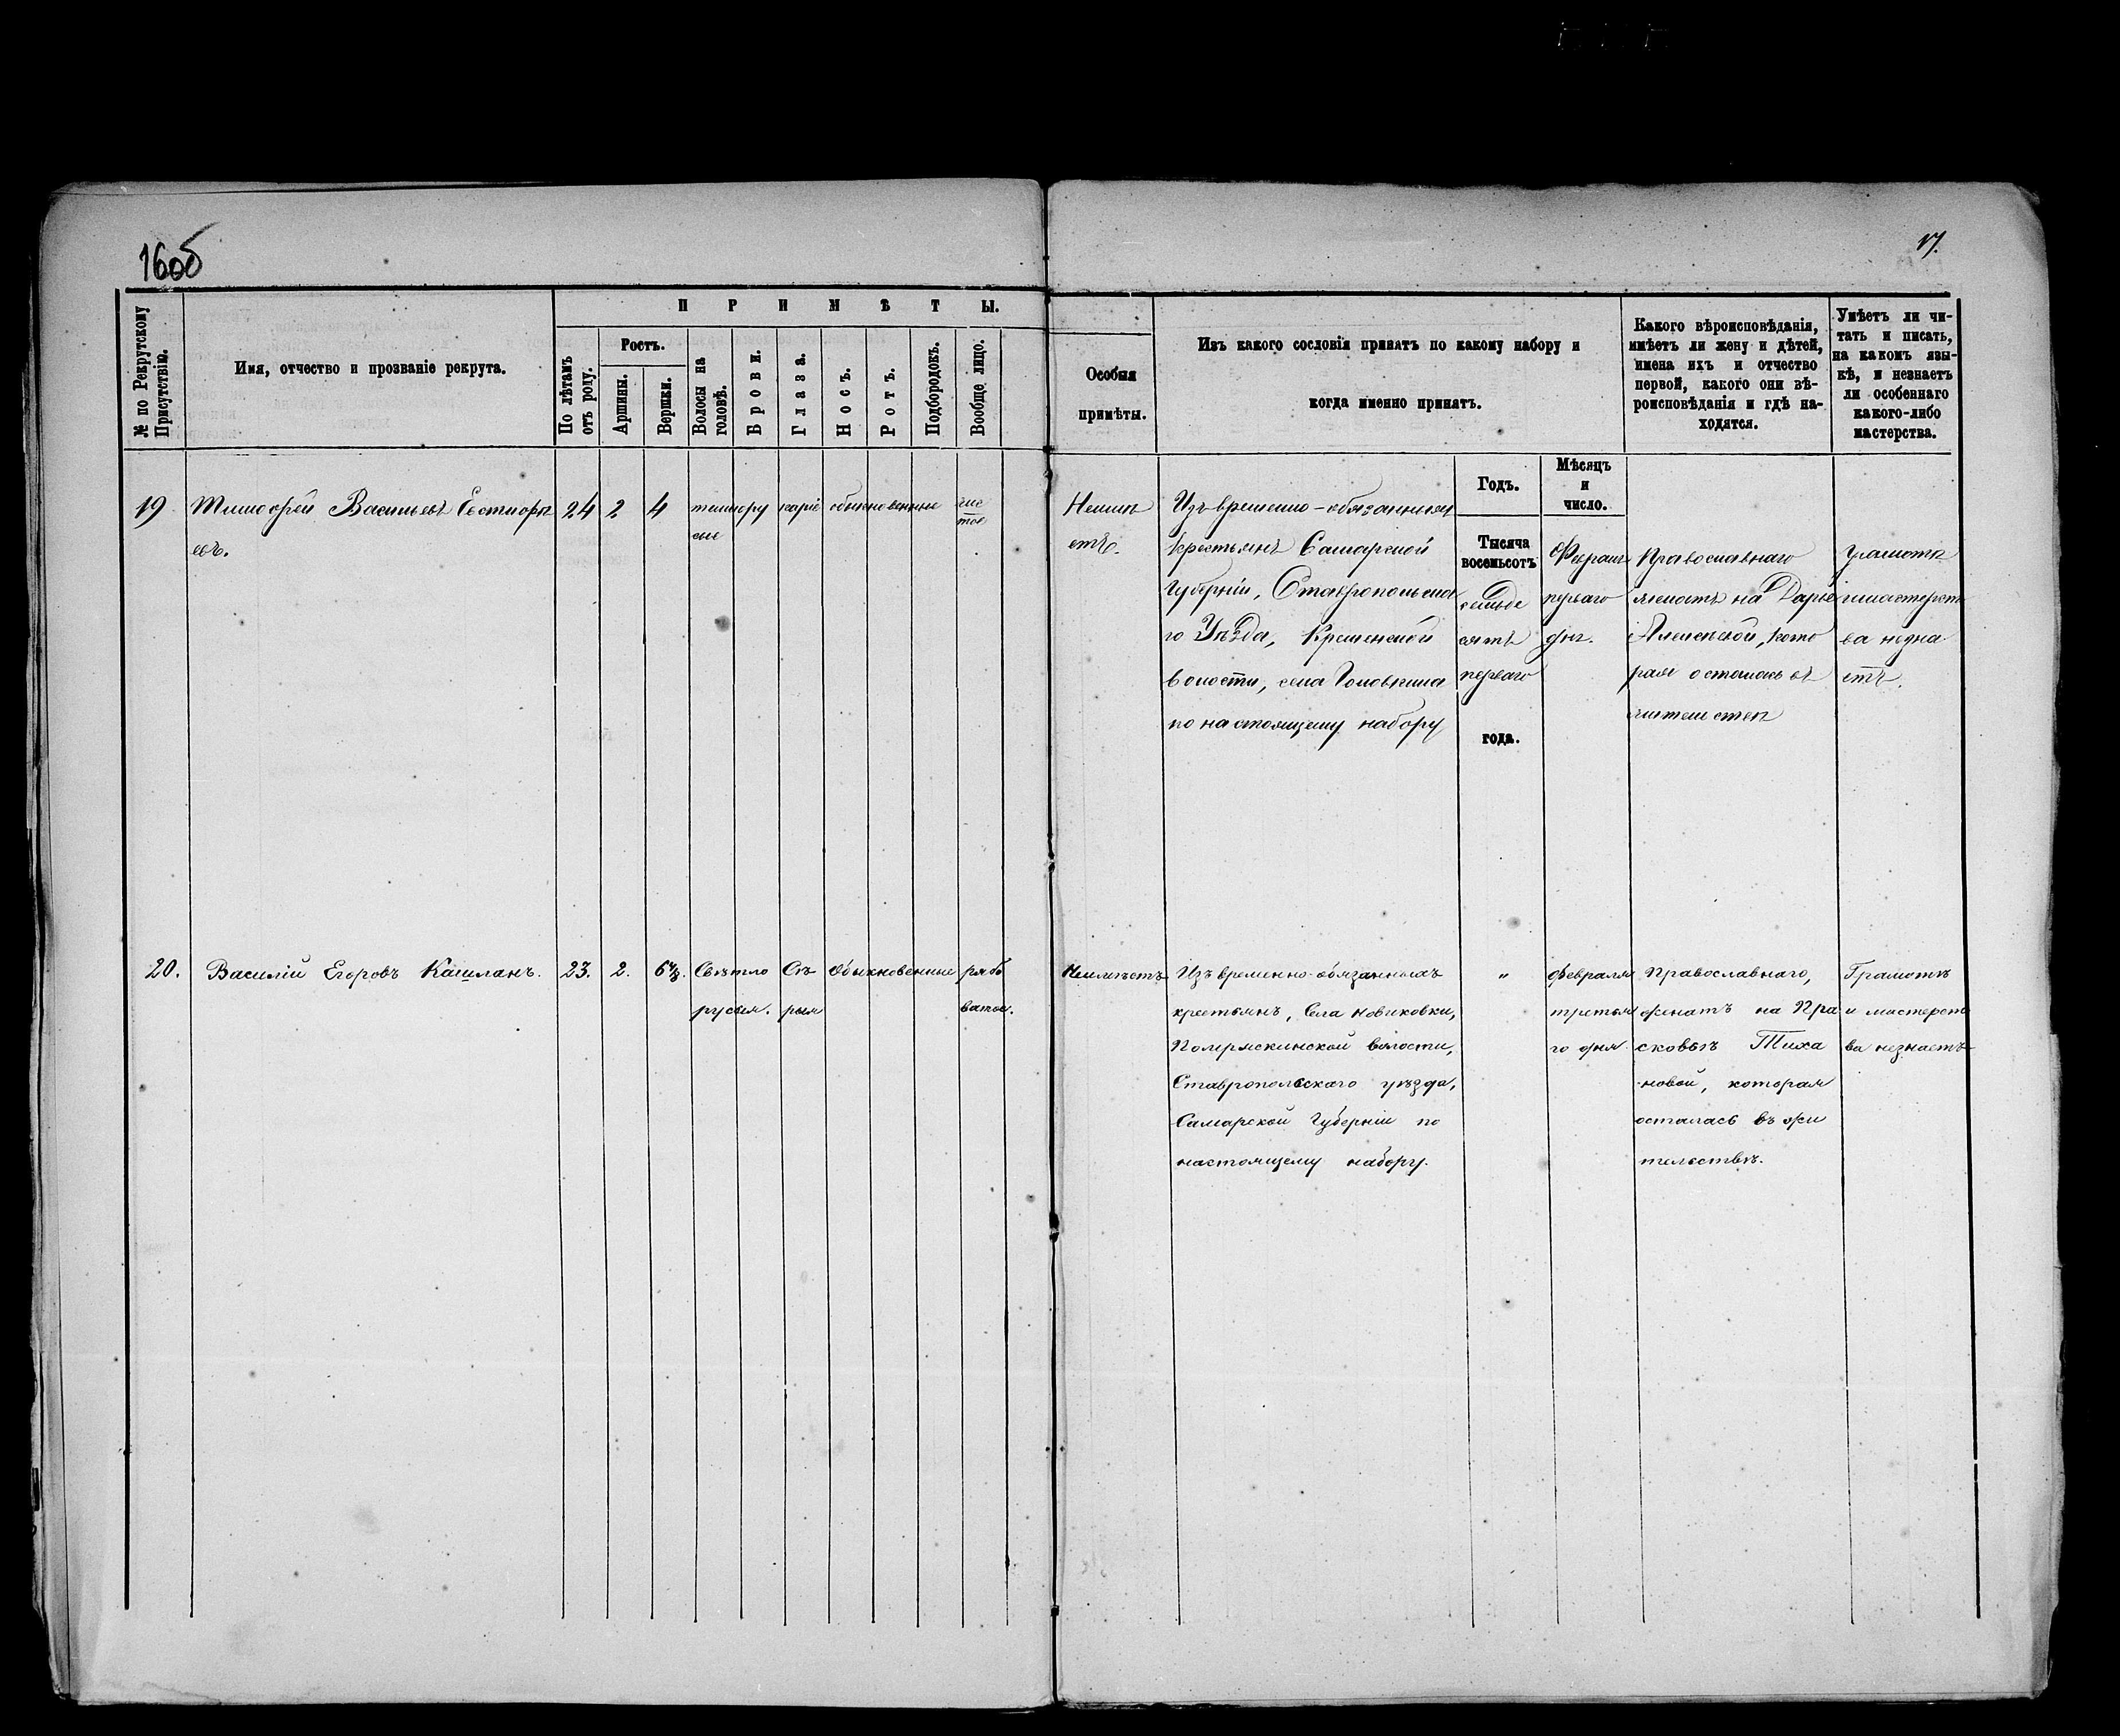 16об
17.
№ по Рекрутскому Присутствію.
Имя, отчество и прозваніе рекрута.
ПРИМѢТЫ.
По лѣтамъ отъ роду.
Ростъ.
Аршины.
Вершки.
Волосы на головѣ.
Брови.
Глаза.
Носъ.
Ротъ.
Подбородокъ.
Вообще лицо.
Особыя
примѣты.
Изъ какого сословія принятъ по какому набору и
когда именно принятъ.
Какого вѣроисповѣданія,
имѣетъ ли жену и дѣтей,
имена ихъ и отчество
первой, какого они вѣ-
роисповѣданія и гдѣ на-
ходятся.
Умѣетъ ли чи-
тать и писать,
на какомъ язы-
кѣ, и незнаетъ
ли особеннаго
какого-либо
мастерства.
Годъ.
Мѣсяцъ
и
число.
19 Тимофей Васильевъ 24 2 4 темнору каріе обыкновенные чис
евъ. сые тое
Неимѣ
етъ.
Изъ временно-обязанныхъ
крестьянъ Самарской
Губерніи, Ставропольска
го Уѣзда, Кременской
волости, села Головкина
по настоящему набору
Тысяча
восемьсотъ
семьде
сятъ
перваго
года.
Февраля
перваго
дня.
Православнаго
женатъ на Дарье
Алексѣевой, кото
рая осталась въ
жительствѣ
грамотѣ
имастерст
ва незна
етъ.
20. Василій Егоровъ Кашланъ. 23. 2. 6 4/8. Свѣтло Сѣ Обыкновенные рябо
русыя. рыя ватое.
Неимѣетъ
Изъ временно-обязанныхъ
крестьянъ, Села Новиковки,
волости,
Ставропольскаго уѣзда,
Самарской Губерніи по
настоящему набору.
"
Февраля
третья
го дня.
Православнаго,
женатъ на Пра
сковьѣ Тиха
новой, которая
осталась въ жи
тельствѣ.
Грамотѣ
и мастерст
ва незнаетъ